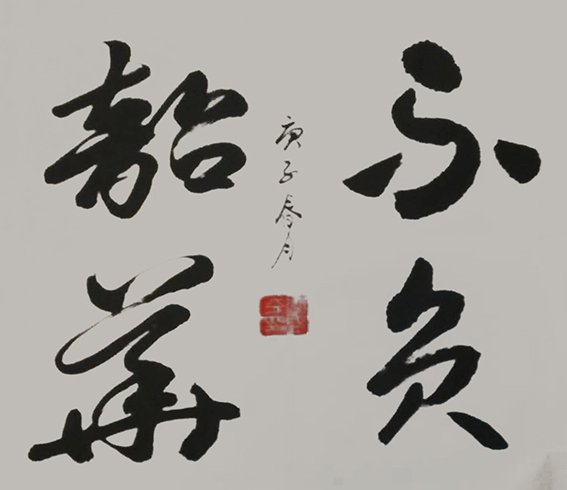 不负
韶华
庚子春月